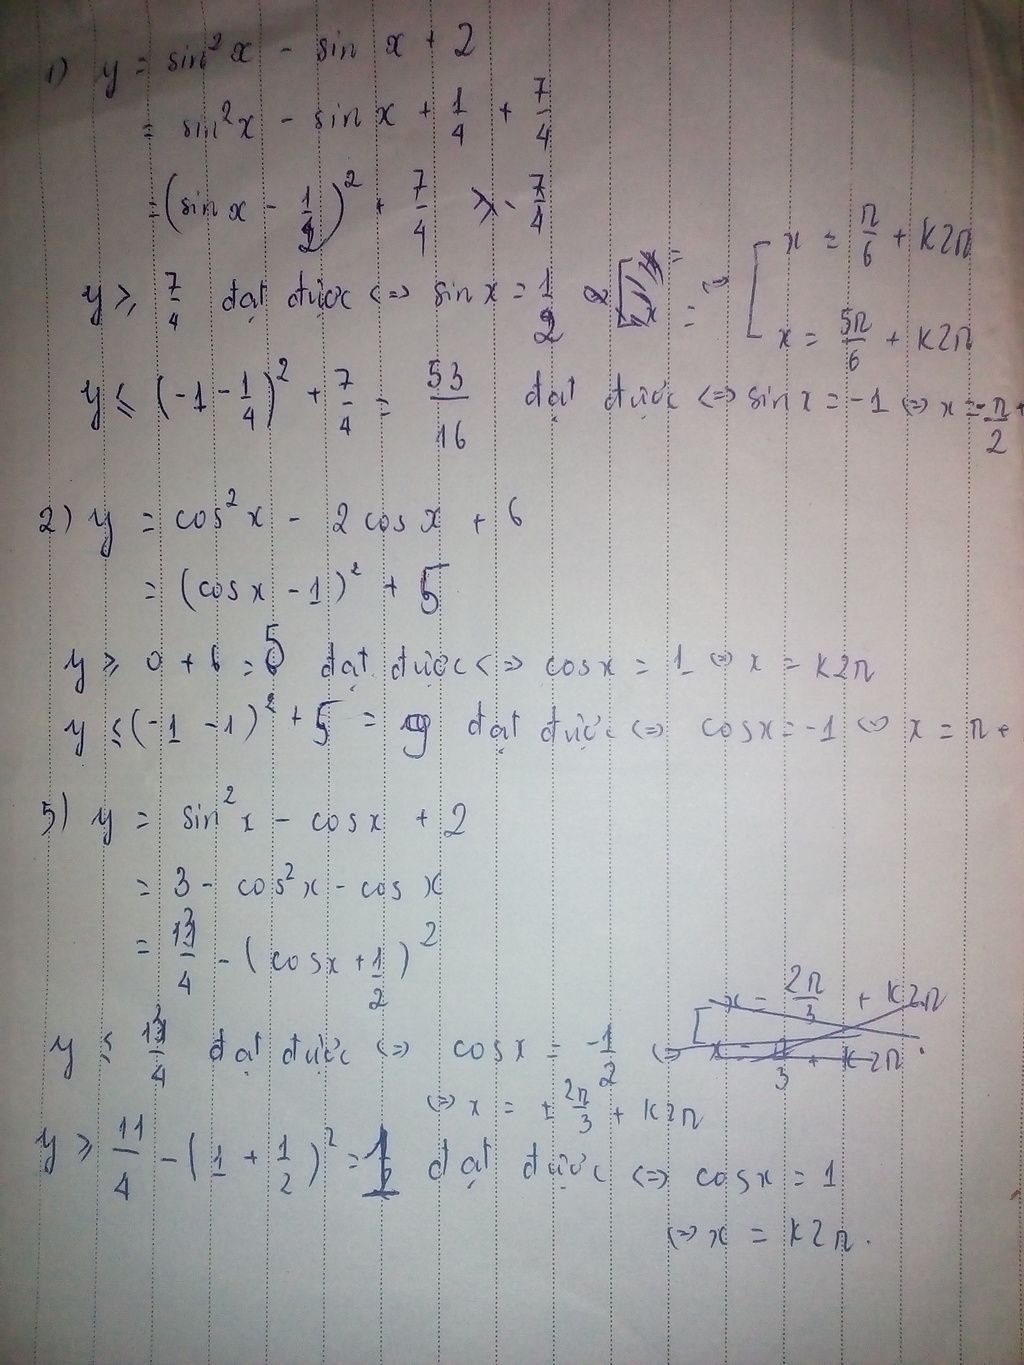 1) y = sin²x - sin x + 2
= sin²x - sin x + 1/4 + 7/4
= (sin x - 1/2)² + 7/4 ≥ 7/4
y ≥ 7/4 đạt được <=> sin x = 1/2 [ x = π/6 + k2π
x = 5π/6 + k2π
y ≤ (-1 - 1/4)² + 7/4 = 53/16 đạt được <=> sin x = -1 <=> x = -π/2 +
2) y = cos²x - 2 cos x + 6
= (cos x - 1)² + 5
y ≥ 0 + 6 = 5 đạt được <=> cos x = 1 <=> x = k2π
y ≤ (-1 - 1)² + 5 = 9 đạt được <=> cos x = -1 <=> x = π +
5) y = sin²x - cos x + 2
= 3 - cos²x - cos x
= 13/4 - (cos x + 1/2)²
y ≤ 13/4 đạt được <=> cos x = -1/2 <=>
<=> x = ± 2π/3 + k2π
y ≥ 11/4 - (1 + 1/2)² = 1 đạt được <=> cos x = 1
<=> x = k2π.